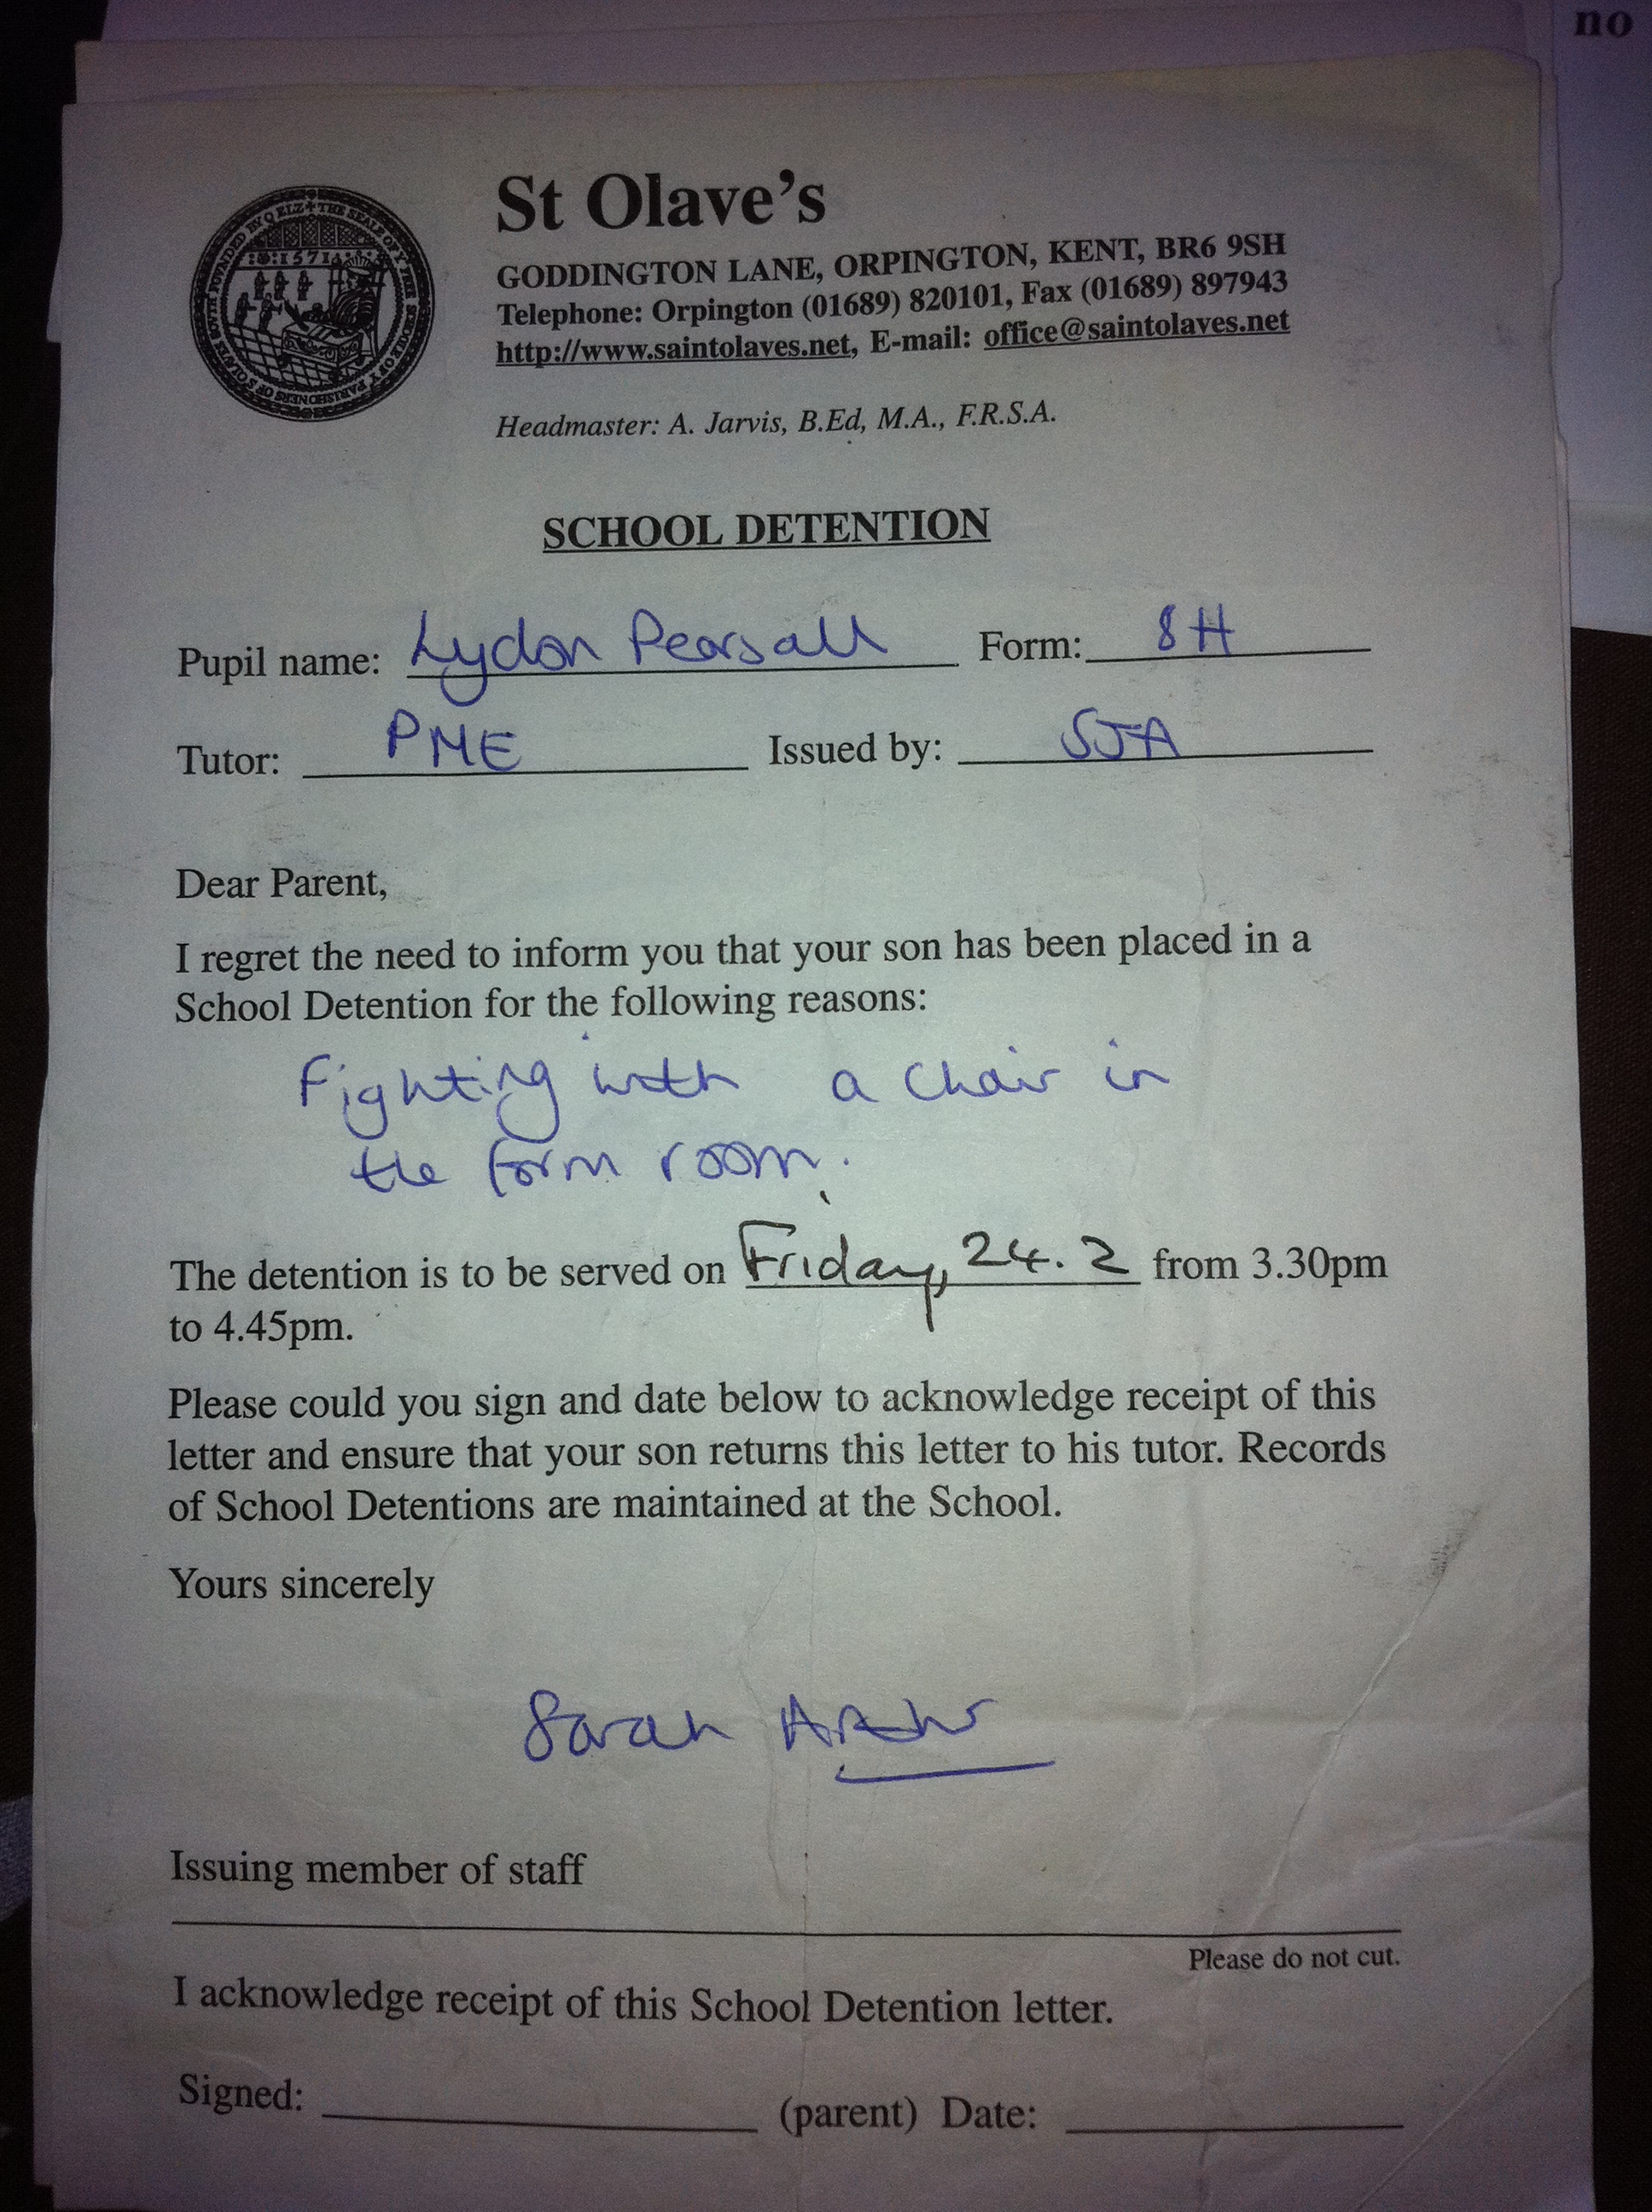 no
St Olave's
GODDINGTON LANE, ORPINGTON, KENT, BR6 9SH
Telephone: Orpington (01689) 820101, Fax (01689) 897943
http://www.saintolaves.net, E-mail: office@saintolaves.net
Headmaster: A. Jarvis, B.Ed, M.A., F.R.S.A.
1571
SCHOOL DETENTION
Pupil name: Lydon Pearsall Form: 8H
Tutor: PME Issued by: SJA
Dear Parent,
I regret the need to inform you that your son has been placed in a
School Detention for the following reasons:
Fighting with a chair in
the form room.
The detention is to be served on Friday, 24.2 from 3.30pm
to 4.45pm.
Please could you sign and date below to acknowledge receipt of this
letter and ensure that your son returns this letter to his tutor. Records
of School Detentions are maintained at the School.
Yours sincerely
Sarah
Issuing member of staff
Please do not cut.
I acknowledge receipt of this School Detention letter.
Signed: (parent) Date: